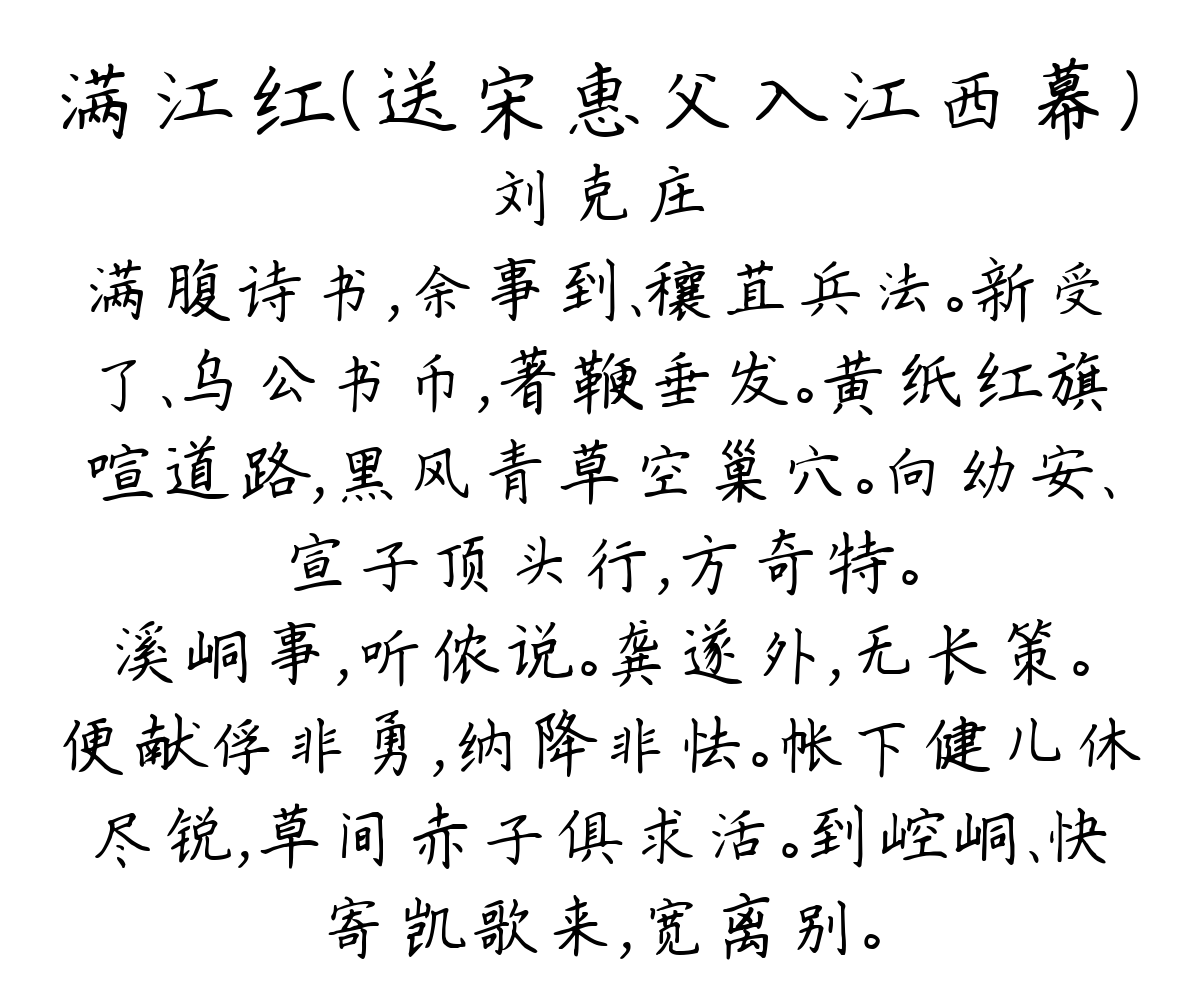 满江红(送宋惠父入江西幕)
刘克庄
满腹诗书,余事到、穰苴兵法。新受
了、乌公书币,著鞭垂发。黄纸红旗
喧道路,黑风青草空巢穴。向幼安、
宣子顶头行,方奇特。
溪峒事,听侬说。龚遂外,无长策。
便献俘非勇,纳降非怯。帐下健儿休
尽锐,草间赤子俱求活。到崆峒、快
寄凯歌来,宽离别。